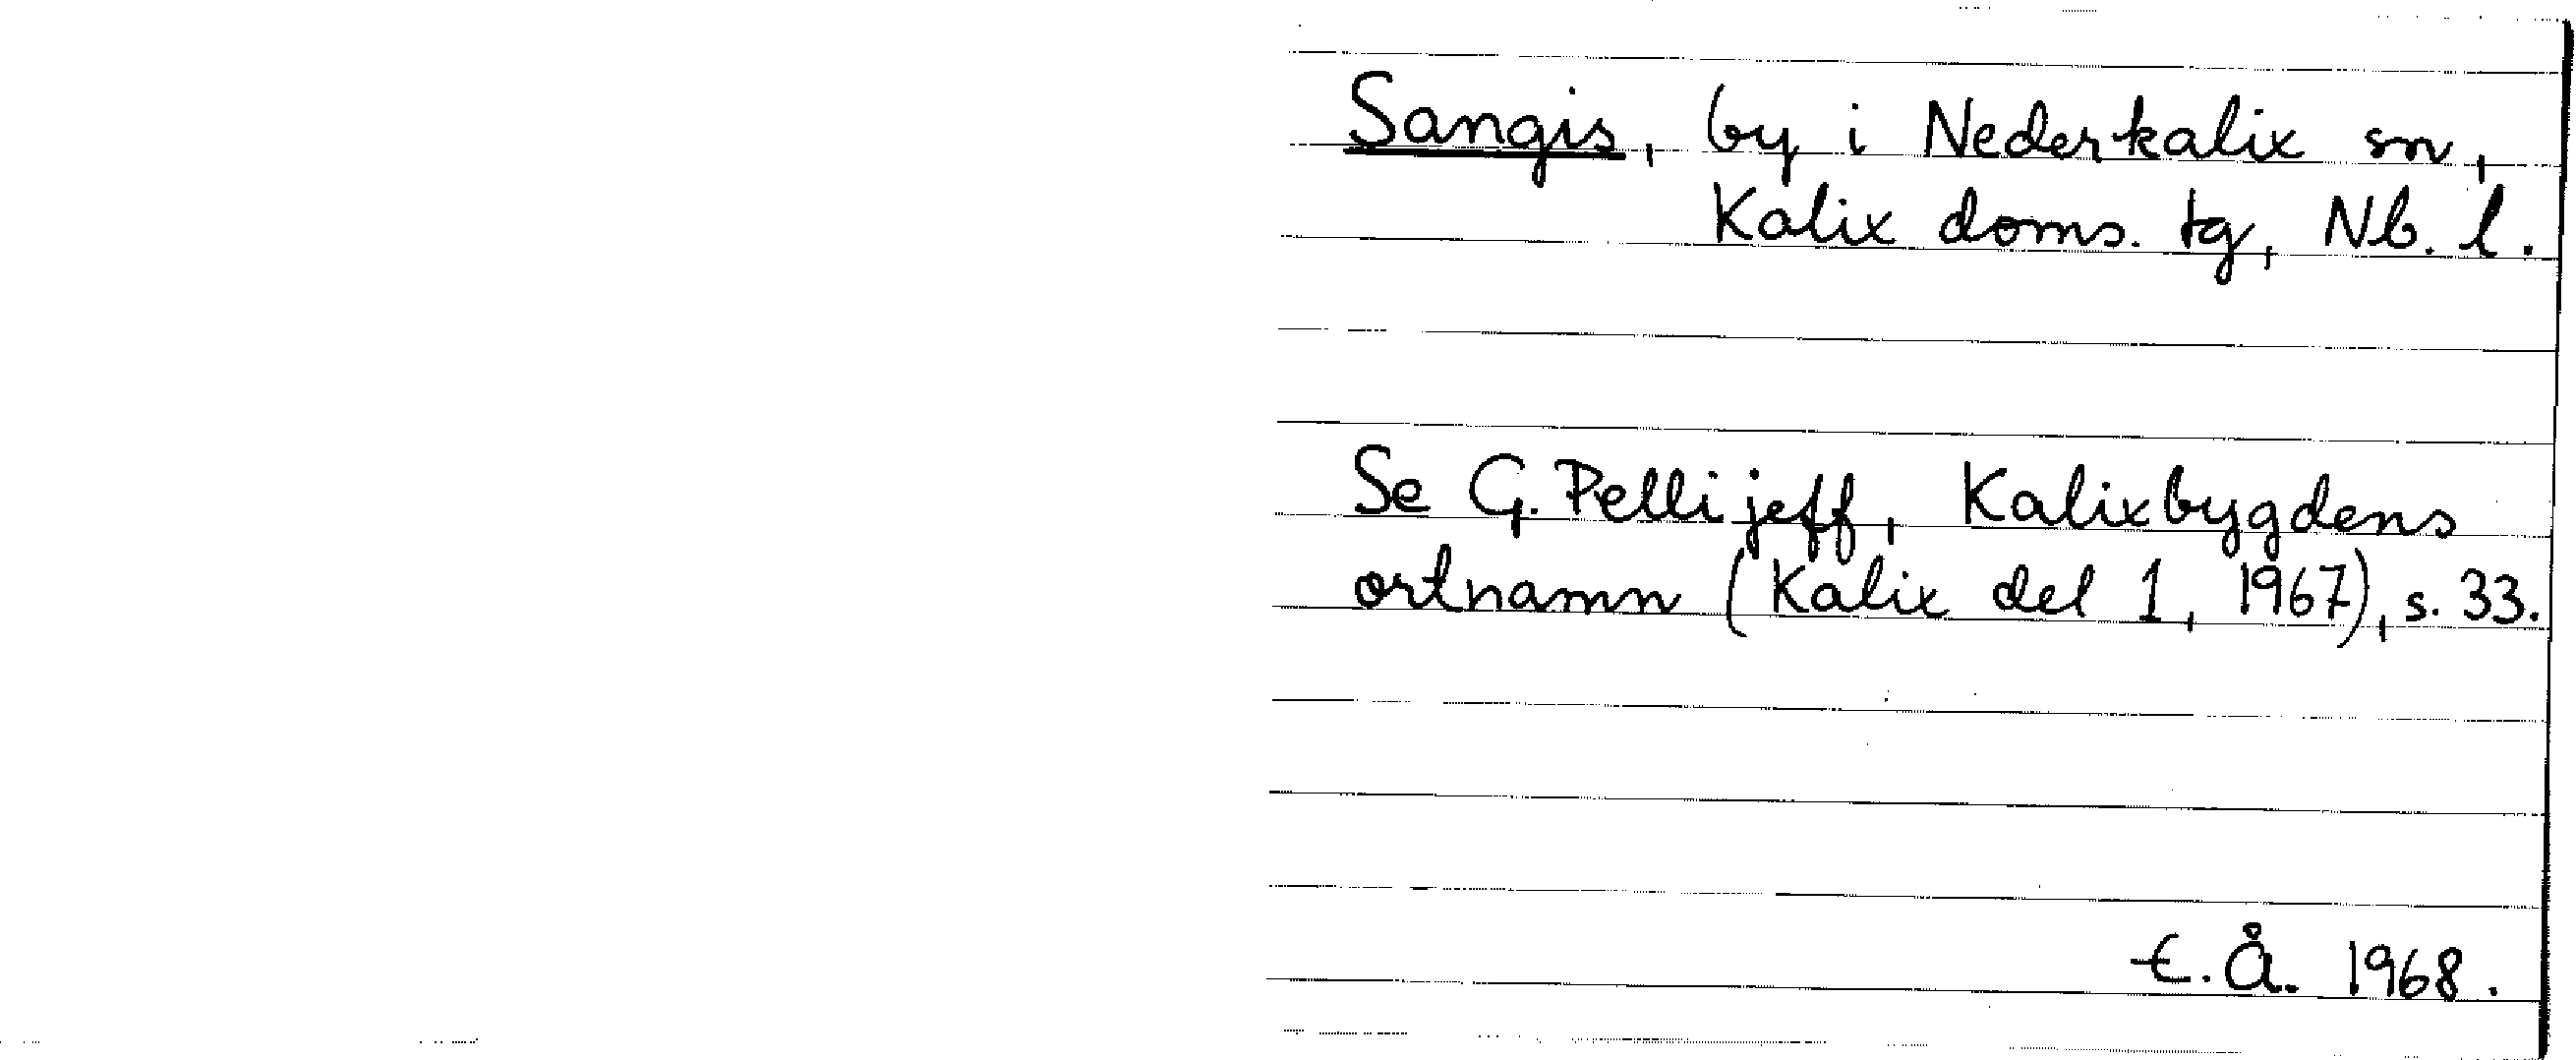 Sangis, by i Nederkalix sn,
Kalix doms. tg, Nb. l.
Se G. Pellijeff, Kalixbygdens
ortnamn (Kalix del 1, 1967), s. 33.
E. Å. 1968.